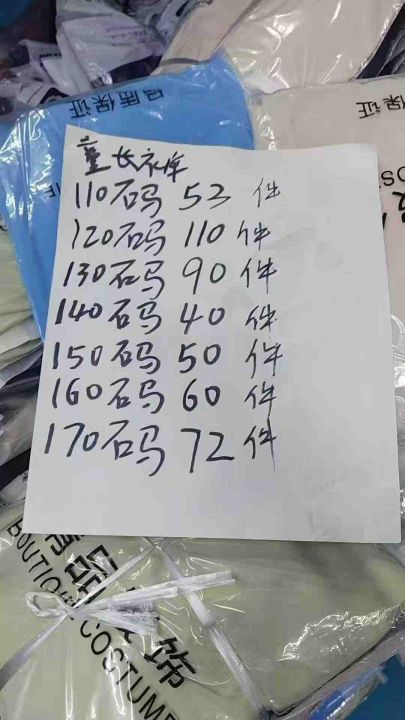 品质保证
证
童长衣库
110码 53 件
120码 110 件
130码 90 件
140码 40 件
150码 50 件
160码 60 件
170码 72 件
精品服饰
BOUTIQUE COSTUME